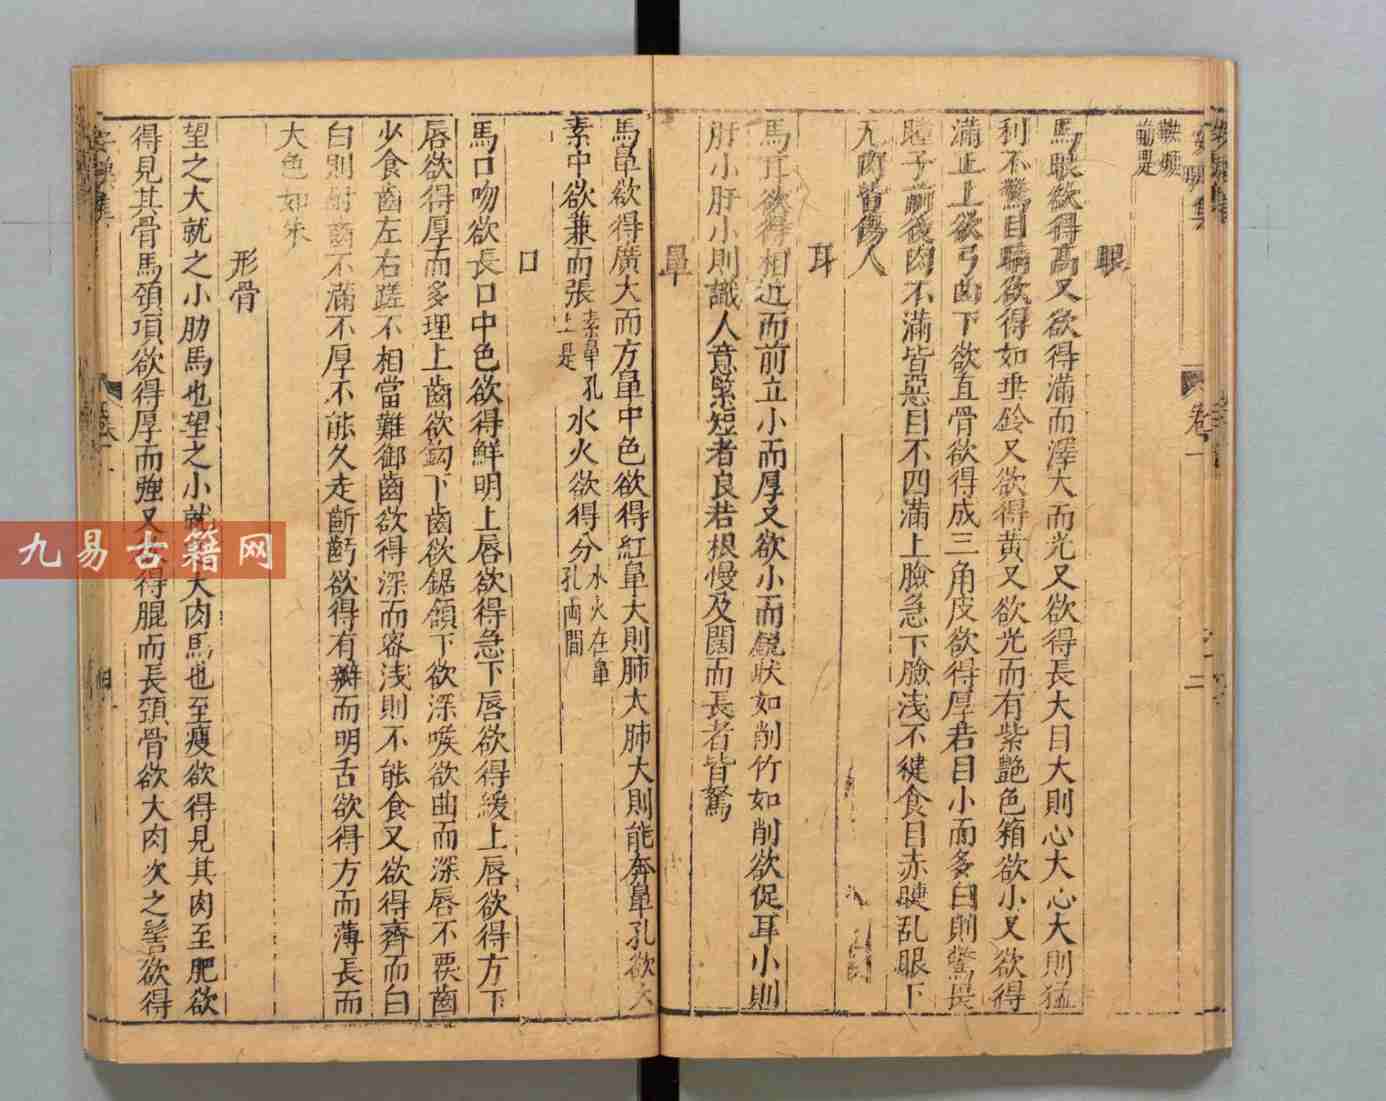 鞅膁
前是
眼
馬眼欲得高又欲得滿而澤大而光又欲得長大目大則心大心大則猛
利不驚目睛欲得如垂鈴又欲得黄又欲光而有紫艶色箱欲小又欲得
滿正上欲弓曲下欲直骨欲得成三角皮欲得厚若目小而多白則驚畏
瞳子前後肉不滿皆惡目不四滿上臉急下臉浅不健食目赤睫乱眼下
无肉皆傷人
耳
馬耳欲得相近而前立小而厚又欲小而銳狀如削竹如削欲促耳小則
肝小肝小則識人意緊短者良若根慢及闊而長者皆駑
鼻
馬鼻欲得廣大而方鼻中色欲得紅鼻大則肺大肺大則能奔鼻孔欲大
素中欲兼而張素鼻孔上是水火欲得分水火在鼻孔両間
口
馬口吻欲長口中色欲得鮮明上唇欲得急下唇欲得緩上唇欲得方下
唇欲得厚而多理上齒欲鈎下齒欲鋸頷下欲深喉欲曲而深唇不覆齒
少食齒左右蹉不相當難御齒欲得深而密浅則不能食又欲得齊而白
白則耐 齒不滿不厚不能久走齗齶欲得有瓣而明舌欲得方而薄長而
大色如朱
形骨
望之大就之小肋馬也望之小就 大肉馬也至瘦欲得見其肉至肥欲
得見其骨馬頸項欲得厚而強又 得腽而長頸骨欲大肉次之髻欲得
卷一
二
九易古籍网